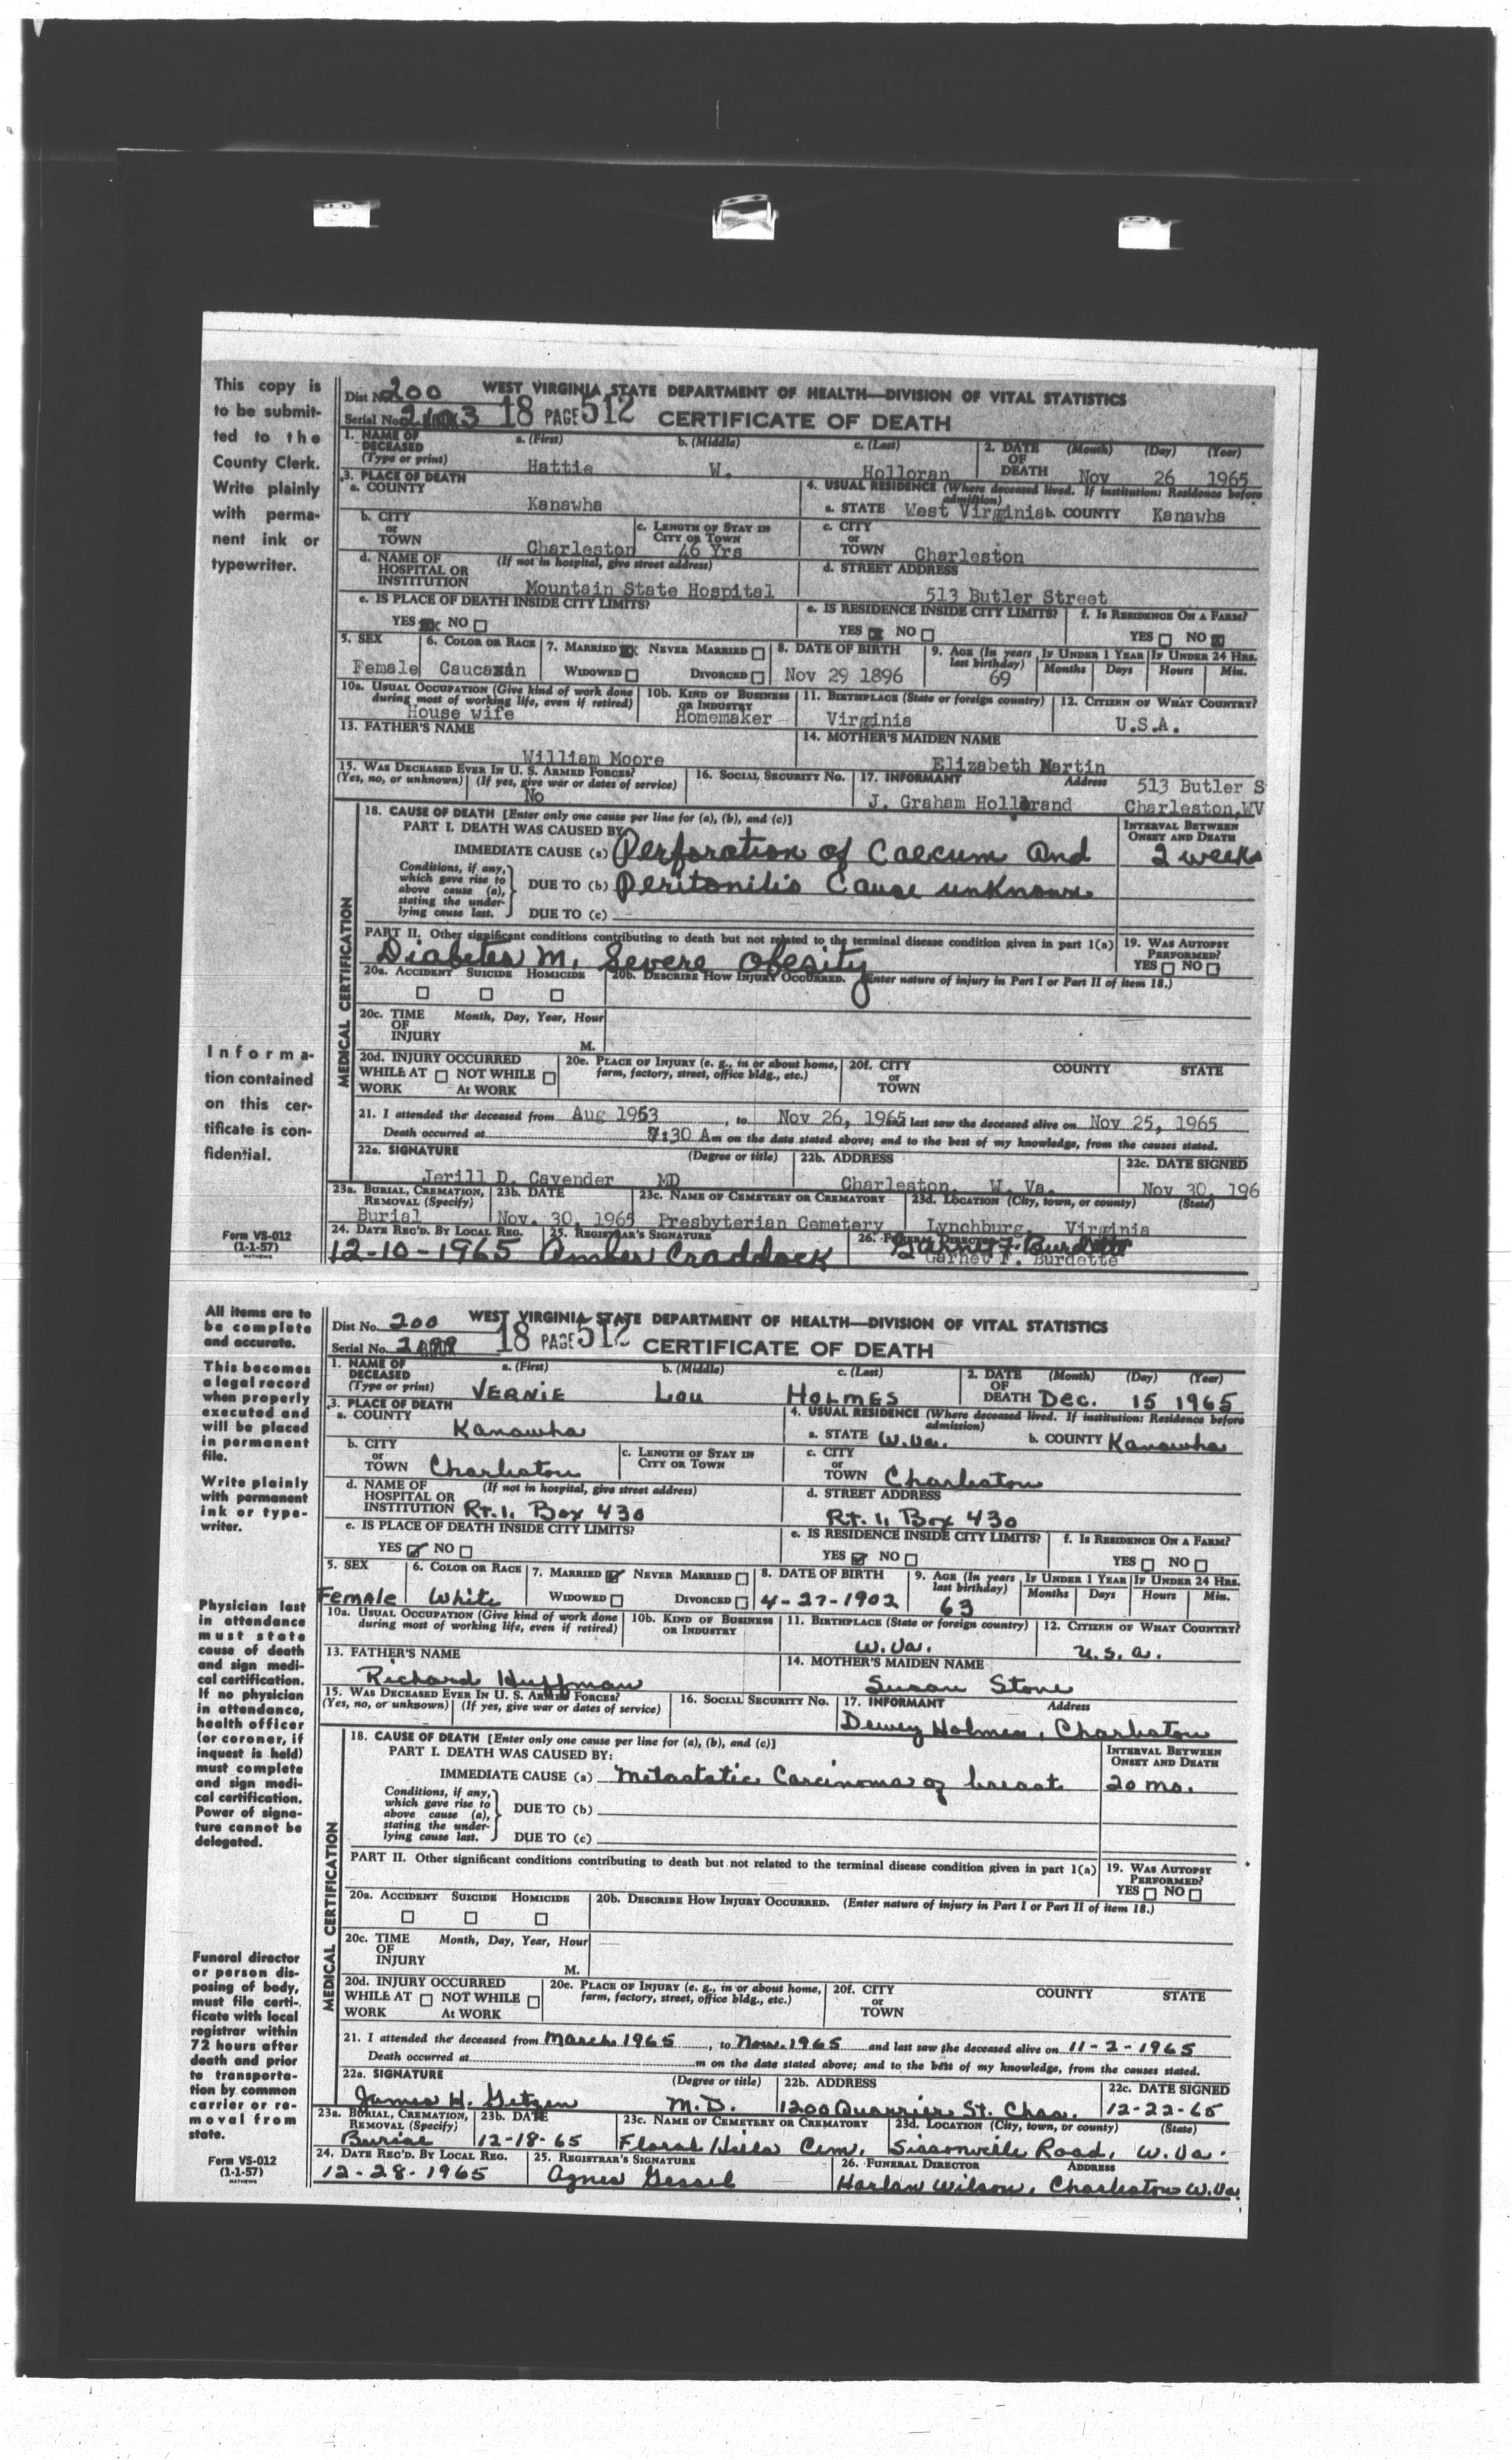 This copy is
to be submit-
ted to the
County Clerk.
Write plainly
with perma-
nent ink or
typewriter.
Informa-
tion contained
on this cer-
tificate is con-
fidential.
Form VS-012
(1-1-57)
MATHEWS
Dist No. 200 WEST VIRGINIA STATE DEPARTMENT OF HEALTH—DIVISION OF VITAL STATISTICS
Serial No. 18 PAGE 512 CERTIFICATE OF DEATH
1. NAME OF DECEASED (Type or print) a. (First) b. (Middle) c. (Last) 2. DATE OF DEATH (Month) (Day) (Year)
Hattie W. Holloran Nov 26 1965
3. PLACE OF DEATH 4. USUAL RESIDENCE (Where deceased lived. If institution: Residence before admission)
a. COUNTY Kanawha a. STATE West Virginia b. COUNTY Kanawha
b. CITY or TOWN Charleston c. LENGTH OF STAY IN CITY OR TOWN 46 Yrs c. CITY or TOWN Charleston
d. NAME OF HOSPITAL OR INSTITUTION (If not in hospital, give street address) Mountain State Hospital d. STREET ADDRESS 513 Butler Street
e. IS PLACE OF DEATH INSIDE CITY LIMITS? e. IS RESIDENCE INSIDE CITY LIMITS? f. IS RESIDENCE ON A FARM?
YES NO YES NO YES NO
5. SEX 6. COLOR OR RACE 7. MARRIED NEVER MARRIED 8. DATE OF BIRTH 9. AGE (In years last birthday) IF UNDER 1 YEAR IF UNDER 24 HRS.
Female Caucasian WIDOWED DIVORCED Nov 29 1896 69 Months Days Hours Min.
10a. USUAL OCCUPATION (Give kind of work done during most of working life, even if retired) 10b. KIND OF BUSINESS OR INDUSTRY 11. BIRTHPLACE (State or foreign country) 12. CITIZEN OF WHAT COUNTRY?
House wife Homemaker Virginia U.S.A.
13. FATHER'S NAME 14. MOTHER'S MAIDEN NAME
William Moore Elizabeth Martin
15. WAS DECEASED EVER IN U. S. ARMED FORCES? 16. SOCIAL SECURITY No. 17. INFORMANT Address 513 Butler S
(Yes, no, or unknown) (If yes, give war or dates of service)
No J. Graham Charleston,WV
18. CAUSE OF DEATH [Enter only one cause per line for (a), (b), and (c)] INTERVAL BETWEEN ONSET AND DEATH
PART I. DEATH WAS CAUSED BY:
IMMEDIATE CAUSE (a) Perforation of Caecum and 2 weeks
Conditions, if any, which gave rise to above cause (a), stating the under-lying cause last. DUE TO (b) Peritonitis Cause unknown
DUE TO (c)
PART II. Other significant conditions contributing to death but not related to the terminal disease condition given in part 1(a) 19. WAS AUTOPSY PERFORMED?
Diabetes M. Severe Obesity YES NO
20a. ACCIDENT SUICIDE HOMICIDE 20b. DESCRIBE HOW INJURY OCCURRED. (Enter nature of injury in Part I or Part II of item 18.)
20c. TIME OF INJURY Month, Day, Year, Hour
M.
20d. INJURY OCCURRED 20e. PLACE OF INJURY (e. g., in or about home, farm, factory, street, office bldg., etc.) 20f. CITY or TOWN COUNTY STATE
WHILE AT WORK NOT WHILE At WORK
MEDICAL CERTIFICATION
21. I attended the deceased from Aug 1963, to Nov 26, 1965 and last saw the deceased alive on Nov 25, 1965
Death occurred at 7:30 Am on the date stated above; and to the best of my knowledge, from the causes stated.
22a. SIGNATURE (Degree or title) 22b. ADDRESS 22c. DATE SIGNED
Jerill D. Cavender MD Charleston, W. Va. Nov 30, 196
23a. BURIAL, CREMATION, REMOVAL (Specify) 23b. DATE 23c. NAME OF CEMETERY OR CREMATORY 23d. LOCATION (City, town, or county) (State)
Burial Nov. 30, 1965 Presbyterian Cemetery Lynchburg, Virginia
24. DATE REC'D. BY LOCAL REG. 25. REGISTRAR'S SIGNATURE 26. FUNERAL DIRECTOR
12-10-1965 Amber Craddock Garnet F. Burdette
Garnet F. Burdette
All items are to
be complete
and accurate.
This becomes
a legal record
when properly
executed and
will be placed
in permanent
file.
Write plainly
with permanent
ink or type-
writer.
Physician last
in attendance
must state
cause of death
and sign medi-
cal certification.
If no physician
in attendance,
health officer
(or coroner, if
inquest is held)
must complete
and sign medi-
cal certification.
Power of signa-
ture cannot be
delegated.
Funeral director
or person dis-
posing of body,
must file certi-
ficate with local
registrar within
72 hours after
death and prior
to transporta-
tion by common
carrier or re-
moval from
state.
Form VS-012
(1-1-57)
MATHEWS
Dist No. 200 WEST VIRGINIA STATE DEPARTMENT OF HEALTH—DIVISION OF VITAL STATISTICS
Serial No. 18 PAGE 512 CERTIFICATE OF DEATH
1. NAME OF DECEASED (Type or print) a. (First) b. (Middle) c. (Last) 2. DATE OF DEATH (Month) (Day) (Year)
VERNIE Lou HOLMES Dec. 15 1965
3. PLACE OF DEATH 4. USUAL RESIDENCE (Where deceased lived. If institution: Residence before admission)
a. COUNTY Kanawha a. STATE W.Va. b. COUNTY Kanawha
b. CITY or TOWN Charleston c. LENGTH OF STAY IN CITY OR TOWN c. CITY or TOWN Charleston
d. NAME OF HOSPITAL OR INSTITUTION (If not in hospital, give street address) Rt. 1, Box 430 d. STREET ADDRESS Rt. 1, Box 430
e. IS PLACE OF DEATH INSIDE CITY LIMITS? e. IS RESIDENCE INSIDE CITY LIMITS? f. IS RESIDENCE ON A FARM?
YES NO YES NO YES NO
5. SEX 6. COLOR OR RACE 7. MARRIED NEVER MARRIED 8. DATE OF BIRTH 9. AGE (In years last birthday) IF UNDER 1 YEAR IF UNDER 24 HRS.
Female White WIDOWED DIVORCED 4-27-1902 63 Months Days Hours Min.
10a. USUAL OCCUPATION (Give kind of work done during most of working life, even if retired) 10b. KIND OF BUSINESS OR INDUSTRY 11. BIRTHPLACE (State or foreign country) 12. CITIZEN OF WHAT COUNTRY?
W.Va. U.S.A.
13. FATHER'S NAME 14. MOTHER'S MAIDEN NAME
Richard Huffman Susan Stone
15. WAS DECEASED EVER IN U. S. ARMED FORCES? 16. SOCIAL SECURITY No. 17. INFORMANT Address
(Yes, no, or unknown) (If yes, give war or dates of service)
Dewey Holmes, Charleston
18. CAUSE OF DEATH [Enter only one cause per line for (a), (b), and (c)] INTERVAL BETWEEN ONSET AND DEATH
PART I. DEATH WAS CAUSED BY:
IMMEDIATE CAUSE (a) Metastatic Carcinoma of breast 20 mo.
Conditions, if any, which gave rise to above cause (a), stating the under-lying cause last. DUE TO (b)
DUE TO (c)
PART II. Other significant conditions contributing to death but not related to the terminal disease condition given in part 1(a) 19. WAS AUTOPSY PERFORMED?
YES NO
20a. ACCIDENT SUICIDE HOMICIDE 20b. DESCRIBE HOW INJURY OCCURRED. (Enter nature of injury in Part I or Part II of item 18.)
20c. TIME OF INJURY Month, Day, Year, Hour
M.
20d. INJURY OCCURRED 20e. PLACE OF INJURY (e. g., in or about home, farm, factory, street, office bldg., etc.) 20f. CITY or TOWN COUNTY STATE
WHILE AT WORK NOT WHILE At WORK
MEDICAL CERTIFICATION
21. I attended the deceased from March 1965, to Nov. 1965 and last saw the deceased alive on 11-2-1965
Death occurred at m on the date stated above; and to the best of my knowledge, from the causes stated.
22a. SIGNATURE (Degree or title) 22b. ADDRESS 22c. DATE SIGNED
James H. Getzen M.D. 1200 Quarrier St. Chas. 12-22-65
23a. BURIAL, CREMATION, REMOVAL (Specify) 23b. DATE 23c. NAME OF CEMETERY OR CREMATORY 23d. LOCATION (City, town, or county) (State)
Burial 12-18-65 Floral Hills Cem. Sissonville Road, W.Va.
24. DATE REC'D. BY LOCAL REG. 25. REGISTRAR'S SIGNATURE 26. FUNERAL DIRECTOR ADDRESS
12-28-1965 Agnes Gessel Harlan Wilson, Charleston W.Va.